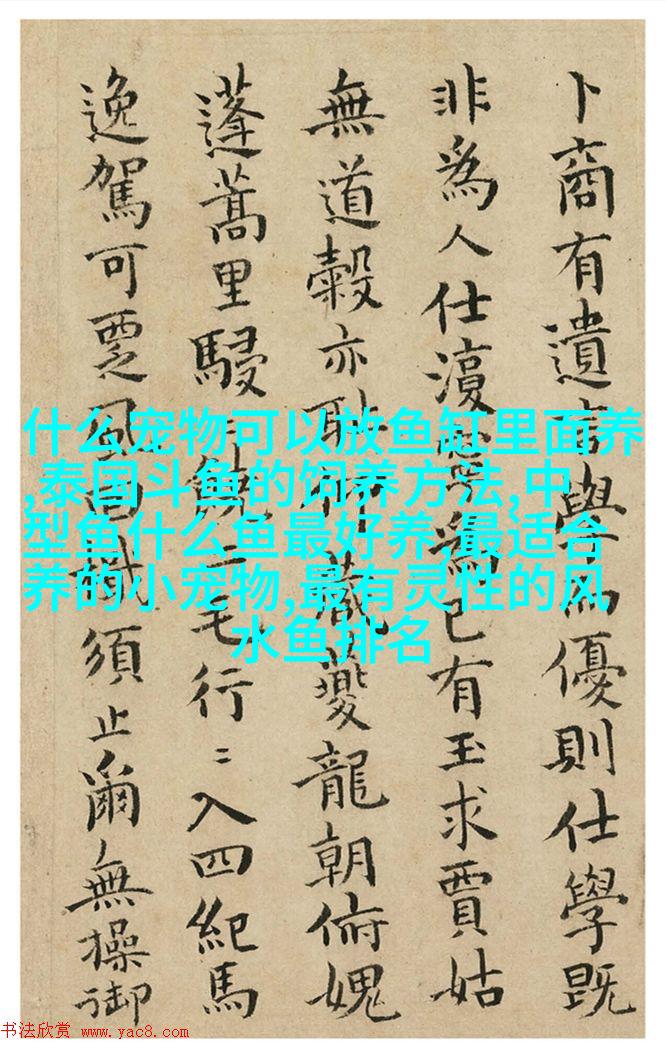 卜商有遺言學而優則仕學既
非爲人仕爲己有玉求賈姑
無道穀亦恥行藏夔龍朝俯媿
蓬蒿里駸二毛行〻入四紀馬
逸駕可覂風須止爾無操御
什么宠物可以放鱼缸里面养
,泰国斗鱼的饲养方法,中
型鱼什么鱼最好养,最适合
养的小宠物,最有灵性的风
水鱼排名
书法欣赏 www.yac8.com